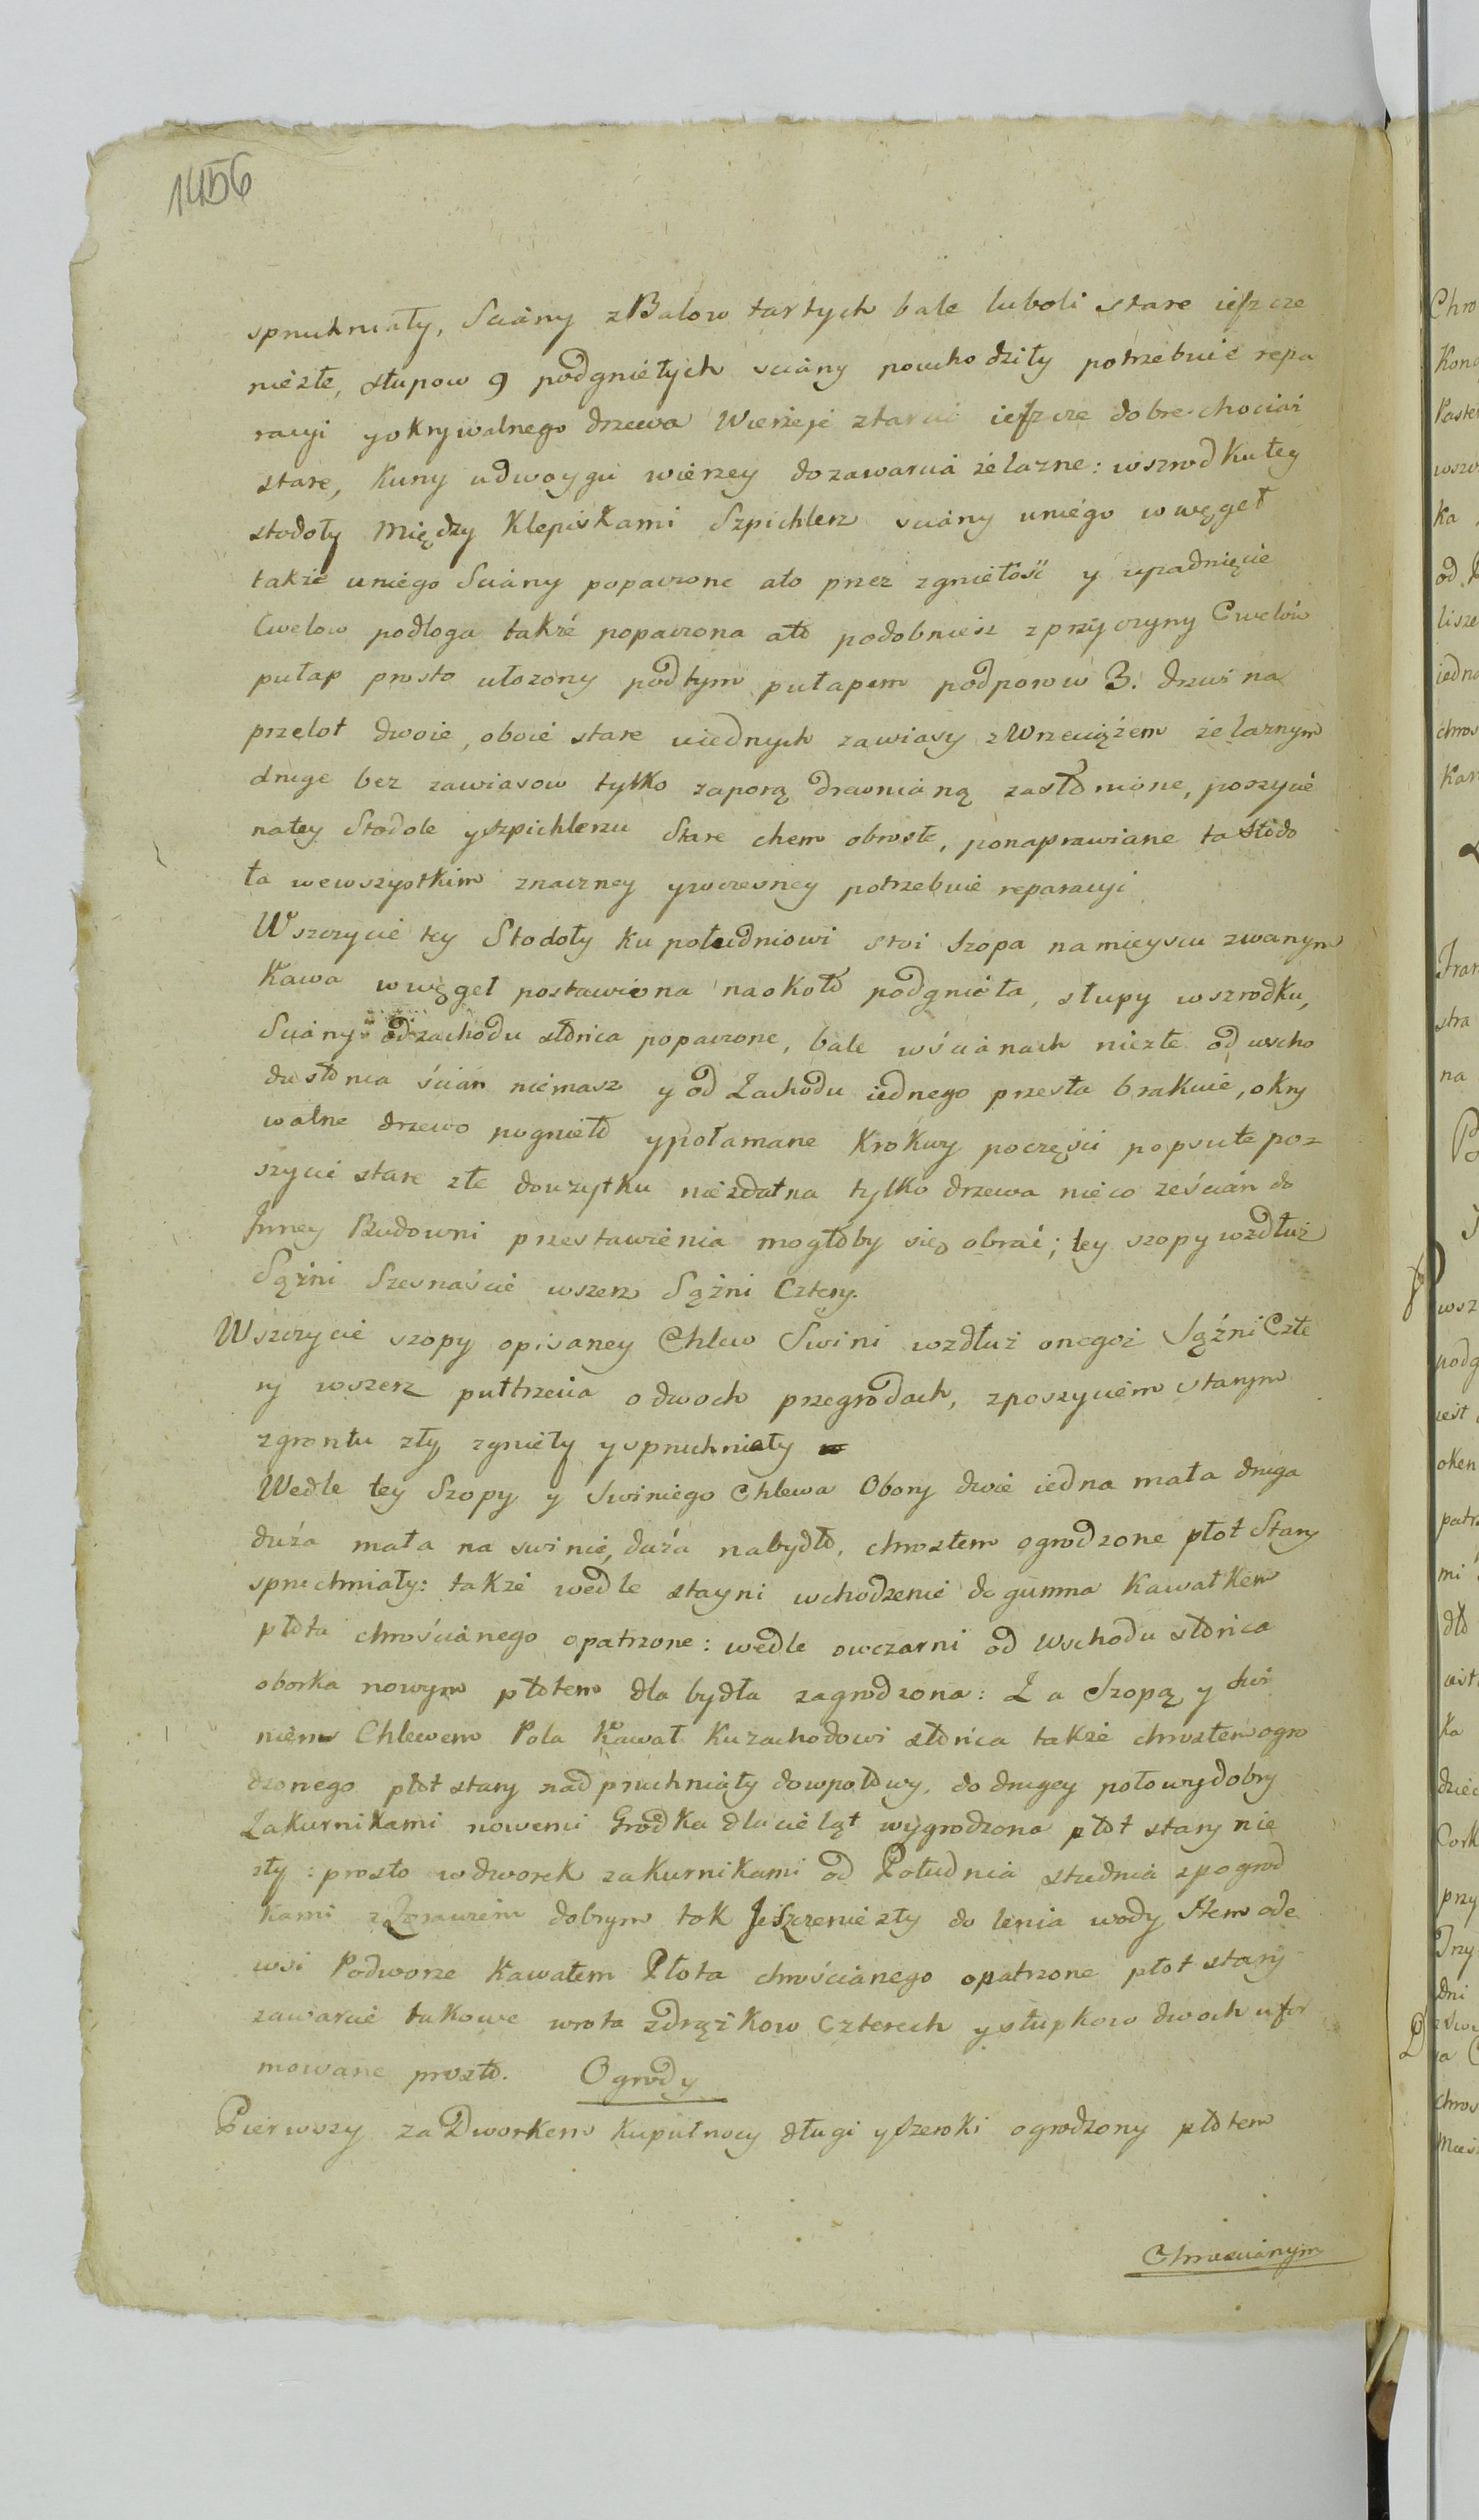 1456
spruchniały, Sciany z Balow tartych bale luboli stare ieszcze
niezłe, słupow 9 podgniełych sciany powchodziły potrzebuie repa
racyi y okrywalnego drzewa Wierzeje ztarcic ieszcze dobre chociaż
stare, Kuny u dwoygu wierzey do zawarcia żelazne: wszrodku tey
stodoły Między Klepiskami Szpichlerz sciany uniego w węgeł
także uniego Sciany popaczone ato przez zgniełość y upadnięcie
Cwelow podłoga także popaczona ato podobnież z przyczyny Cwelów
pułap prosto ułożony pod tym pułapem podporow 3. drzwi na
przelot dwoie, oboie stare uiednych zawiasy z Wrzeciążem żelaznym
drugie bez zawiasow tylko zaporą drewnianą zasłonione, poszycie
na tey Stodole y szpichlerzu Stare chem obrosłe, ponaprawiane ta Stodo
ła wewszystkim znaczney y wczesney potrzebuie reparacyi
W szczycie tey Stodoły ku południowi stoi Szopa na mieyscu zwanym
Kawa w węgeł postawiona naokoło podgnieła, słupy wszrodku,
Sciany od zachodu słońca popaczone, bale w ścianach niezłe od wscho
du słonca ścian niemasz y od Zachodu iednego przesła brakuie, okry
walne drzewo pogniełο y połamane Krokwy poczęści popsute po=
szycie stare złe do użytku niezdatna tylko drzewa nieco ześcian do
Inney Budowni przestawienia mogłoby się obrać; tey szopy wzdłuż
Sążni Szesnaście wszerz Sążni Cztery.
W szczycie szopy opisaney Chlew Swini wzdłuż onegoż Sążni Czte
ry wszerz pułtrzecia o dwoch przegrodach, z poszyciem starym
z grontu zły zgnieły y spruchniały
Wedle tey Szopy y Swiniego Chlewa Obory dwie iedna mała druga
duża mała na swinie, duża na bydło, chrostem ogrodzone płot Stary
spruchniały: także wedle stayni wchodzenie do gumna Kawałkem
płota chrościanego opatrzone: wedle owczarni od Wschodu słońca
oborka nowym płotem dla bydła zagrodzona: Za Szopą y Swi
niem Chlewem Pola Kawał Ku zachodowi słońca także chrostem ogro
dzonego płot stary nadpruchniały do wpołowy, do drugey połowy dobry
Za Kurnikami nowemi Grodka dla cieląt wygrodzona płot stary nie
zły: prosto w dworek za Kurnikami od Południa studnia z pogrod
kami z Żorawiem dobrym tok Jeszcze niezły do lenia wody Item ode
wsi Podworze Kawałem Płota chrościanego opatrzone płot stary
zawarcie takowe wrota z drążkow czterech y słupkow dwoch ufor
mowane prosto. Ogrody
Pierwszy za Dworkem ku pułnocy długi y szeroki ogrodzony płotem
Chrościanym